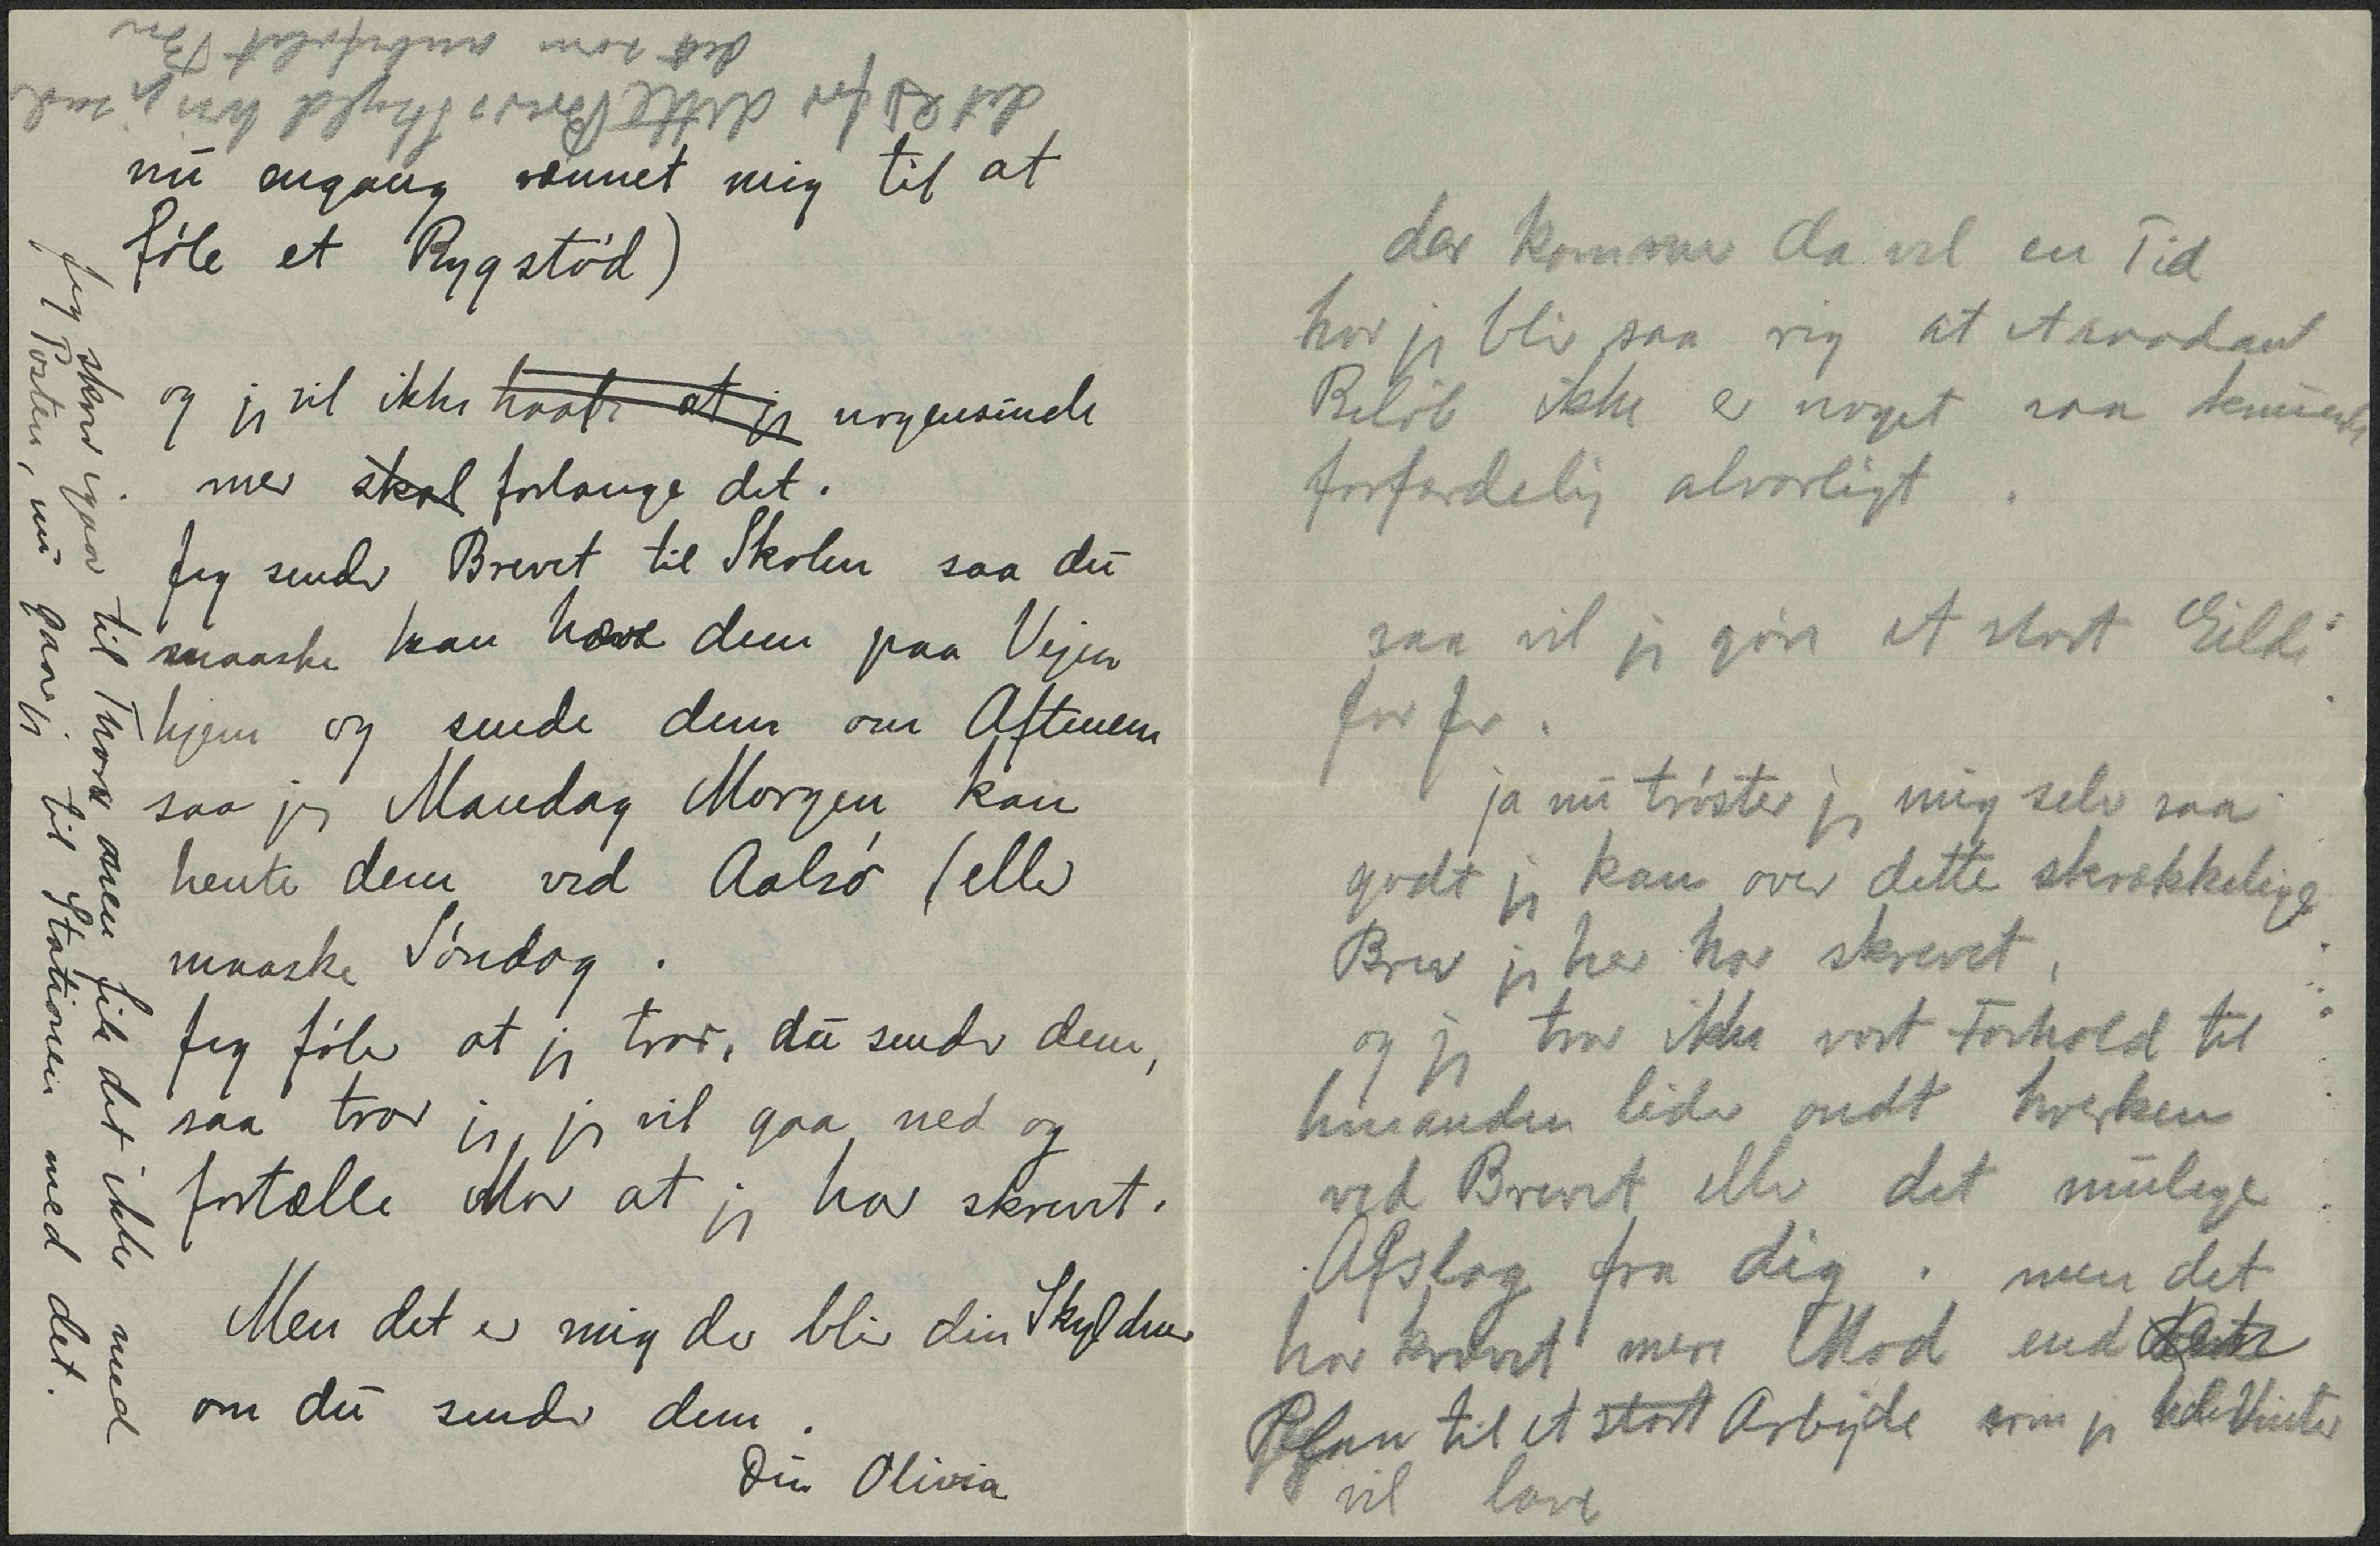 nu engang vænnet mig til at
føle et Rygstød)
og jeg vil ikke haabe at jeg nogensinde
mer skal forlange det.
Jeg sender Brevet til Skolen saa du
maaske kan hæve dem paa Vejen
hjem og sende dem om Aftenen
saa jeg Mandag Morgen kan
hente dem ved Aalsø (eller
maaske Søndag.
Jeg føler at jeg tror, du sender dem,
saa tror jeg, jeg vil gaa ned og
fortælle Mor at jeg har skrevet.
Men det er mig der blir din Skyldner
om du sender dem.
Din Olivia
Jeg skrev igaar til Thora men fik det ikke med
Posten, nu gaar jeg til Stationen med det.
det for dette Brevs Skyld
det som anbefalet Brev
der kommer da vel en Tid
hvor jeg blir saa rig at et saadant
Beløb ikke er noget saa knusende
forfærdelig alvorligt.
saa vil jeg gøre et stort Gilde
for Jer.
ja nu trøster jeg mig selv saa
godt jeg kan over dette skrækkelige
Brev jeg her har skrevet,
og jeg tror ikke vort Forhold til
hinanden lider ondt hverken
ved Brevet eller det mulige
Afslag fra dig. men det
har krævet mere Mod end dette
Plan til et stort Arbejde som jeg hele Vinter
vil lave